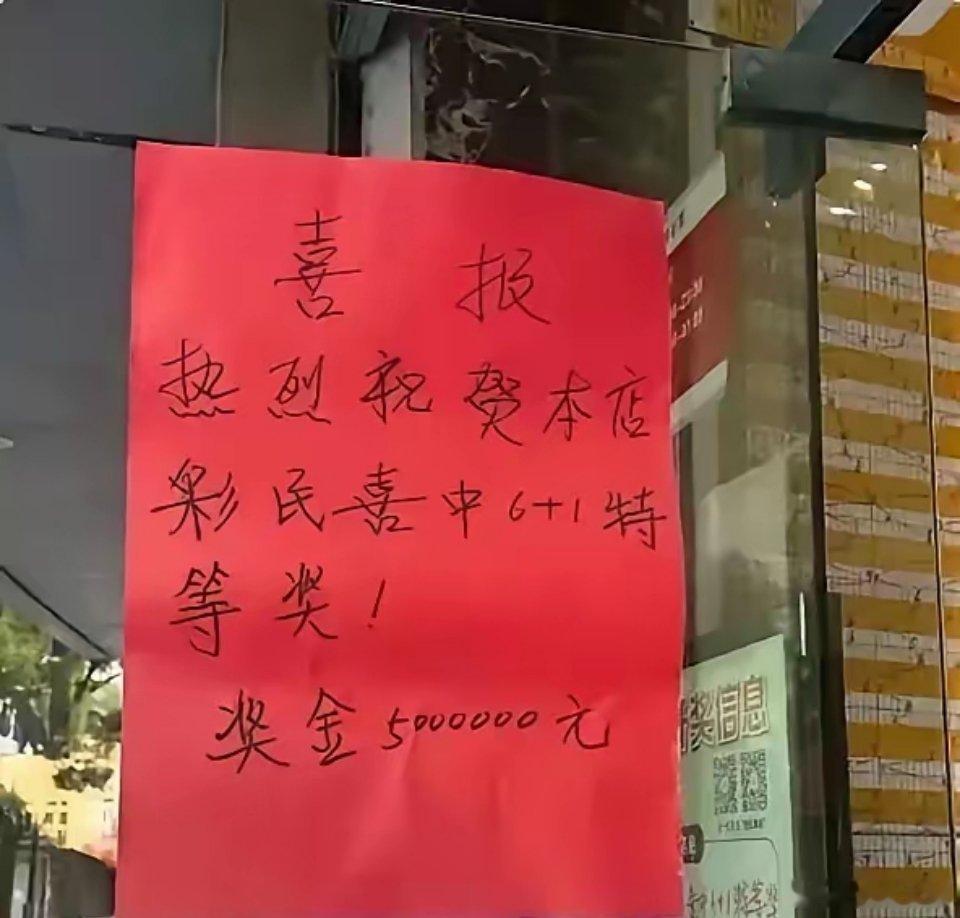 喜报
热烈祝贺本店
彩民喜中6+1特
等奖!
奖金5000000元
奖信息